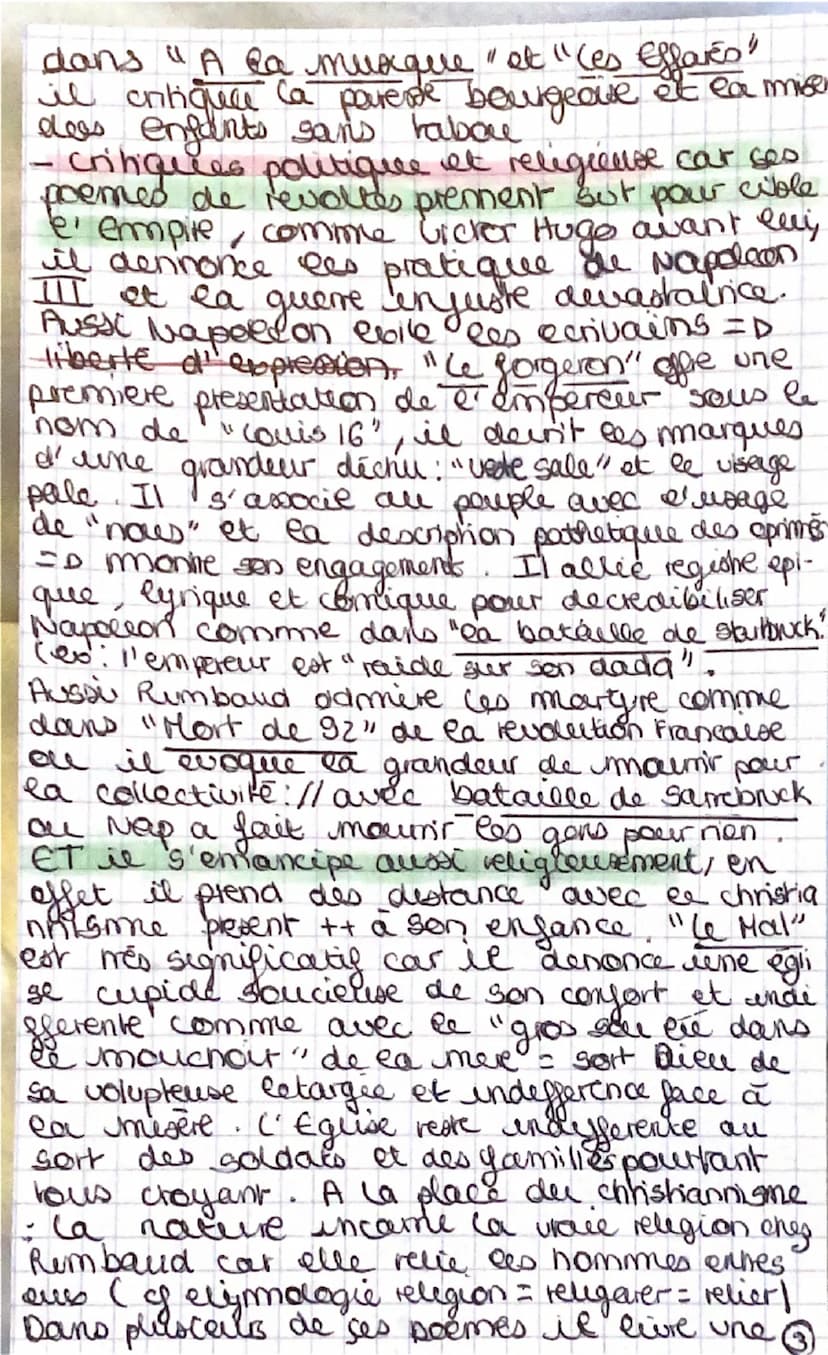 dans "A la musique" et "Les Effarés"
il critique la paresse bourgeoise et la miser
dees enfants sans tabou
- critiques politique et religieuse car ses
poemes de revoltes prennent surt pour cible
l'empire, comme Victor Hugo avant lui,
il dennonce les pratique de Napoleon
III et la guerre injuste devastatrice.
Aussi Napoleon exile les ecrivains =D
liberté d'expression. "Le forgeron" offre une
premiere presentation de l'empereur sous le
nom de "Louis 16", il decrit les marques
d'une grandeur déchu : "veste sale" et le visage
pale. Il s'associe au peuple avec l'usage
de "nous" et la description pathetique des oprimés
=D montre son engagements. Il allie registre epi-
que, lyrique et comique pour decredibiliser
Napoleon comme dans "la bataille de
: l'empereur est "raide sur son dada".
Aussi Rimbaud admire les martyre comme
dans "Mort de 92" de la revolution Francaise
ou il evoque la grandeur de mourir pour
la collectivité : // avec bataille de Sarrebruck
ou Nap a fait mourrir les gens pour rien.
ET il s'emancipe aussi religieusement, en
effet il prend des distance avec le christia
nnisme present ++ à son enfance. "Le Mal"
est très significatif car il denonce une égli
se cupide soucieuse de son confort et indi
fferente comme avec le "gros sou lié dans
le mouchoir" de la mere = sort Dieu de
sa volupteuse letargie et indefference face à
la misère. L'Eglise reste indifferente au
sort des soldats et des familles pourtant
tous croyant. A la place du christiannisme
: la nature incarne la vraie religion chez
Rimbaud car elle relie les hommes entres
eux (cf etymologie religion = religarer = relier)
Dans plusieurs de ses poèmes il livre une
3